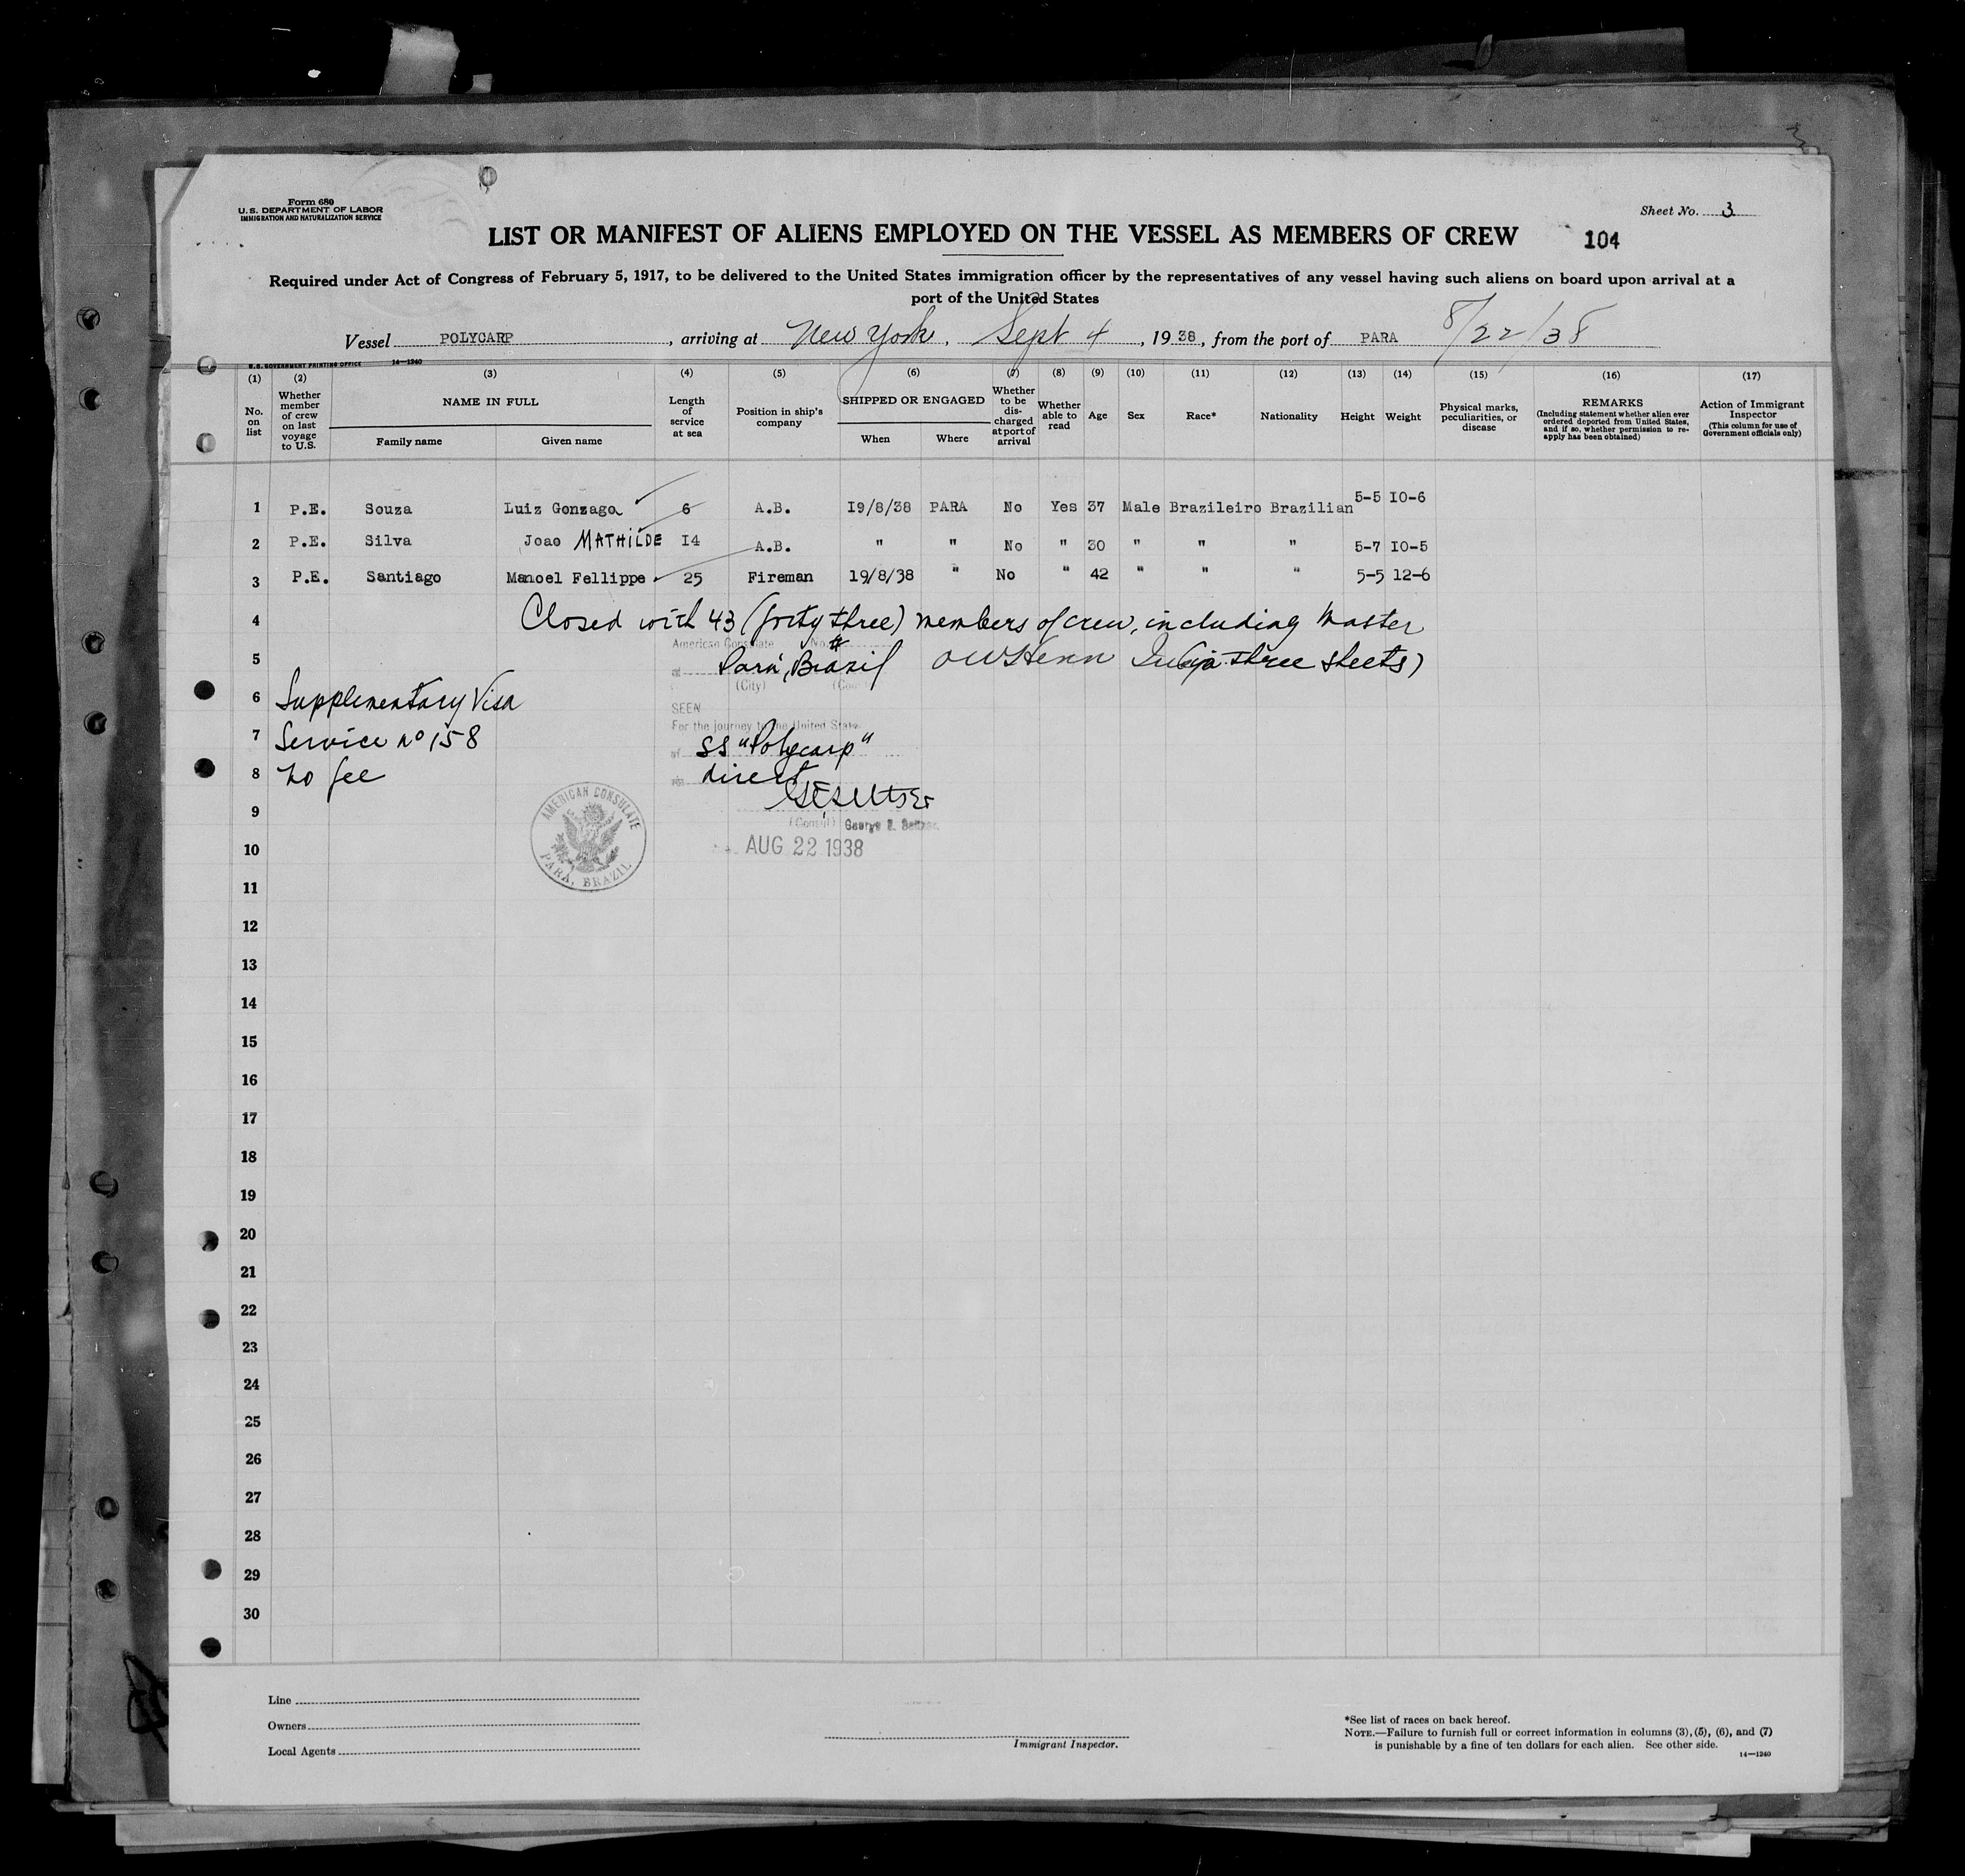 Form 680
U. S. DEPARTMENT OF LABOR
IMMIGRATION AND NATURALIZATION SERVICE
Sheet No. 3
LIST OR MANIFEST OF ALIENS EMPLOYED ON THE VESSEL AS MEMBERS OF CREW 104
Required under Act of Congress of February 5, 1917, to be delivered to the United States immigration officer by the representatives of any vessel having such aliens on board upon arrival at a
port of the United States
Vessel POLYCARP, arriving at New York, Sept 4, 1938, from the port of PARA 8/22/38
U. S. GOVERNMENT PRINTING OFFICE 14—1240
(1) (2) (3) (4) (5) (6) (7) (8) (9) (10) (11) (12) (13) (14) (15) (16) (17)
No. on list
Whether member of crew on last voyage to U.S.
NAME IN FULL
Family name Given name
Length of service at sea
Position in ship's company
SHIPPED OR ENGAGED
When Where
Whether to be discharged at port of arrival
Whether able to read
Age
Sex
Race*
Nationality
Height
Weight
Physical marks, peculiarities, or disease
REMARKS
(Including statement whether alien ever ordered deported from United States, and if so, whether permission to re-apply has been obtained)
Action of Immigrant Inspector
(This column for use of Government officials only)
1 P.E. Souza Luiz Gonzaga 6 A.B. I9/8/38 PARA No Yes 37 Male Brazileiro Brazilian 5-5 I0-6
2 P.E. Silva Joao MATHILDE I4 A.B. " " No " 30 " " " 5-7 I0-5
3 P.E. Santiago Manoel Fellippe 25 Fireman 19/8/38 " No " 42 " " " 5-5 12-6
4 Closed with 43 (forty three) members of crew, including Master
American Consulate No.
5 at Pará, Brazil (in three sheets)
(City)
6 Supplementary Visa
SEEN
For the journey to the United States
7 Service no 158
of SS "Polycarp"
8 no fee
direct
9
(Consul) George E. Seltzer
AMERICAN CONSULATE
PARA, BRAZIL
10 AUG 22 1938
11
12
13
14
15
16
17
18
19
20
21
22
23
24
25
26
27
28
29
30
Line
Owners
Local Agents
Immigrant Inspector.
*See list of races on back hereof.
NOTE.—Failure to furnish full or correct information in columns (3), (5), (6), and (7)
is punishable by a fine of ten dollars for each alien. See other side.
14—1240